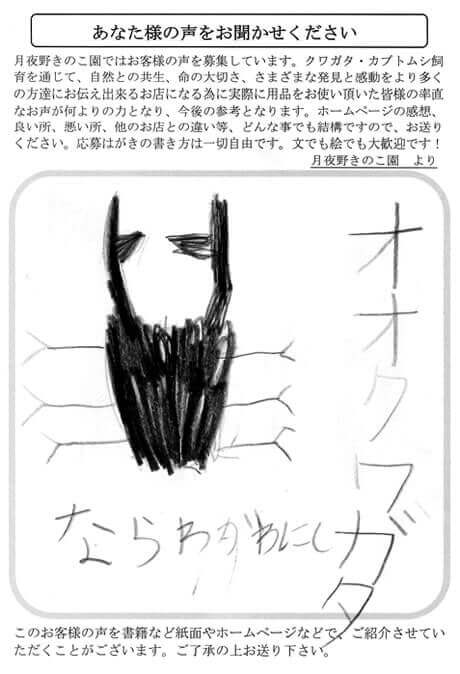 あなた様の声をお聞かせください
月夜野きのこ園ではお客様の声を募集しています。クワガタ・カブトムシ飼
育を通じて、自然との共生、命の大切さ、さまざまな発見と感動をより多く
の方達にお伝え出来るお店になる為に実際に用品をお使い頂いた皆様の率直
なお声が何よりの力となり、今後の参考となります。ホームページの感想、
良い所、悪い所、他のお店との違い等、どんな事でも結構ですので、お送り
ください。応募はがきの書き方は一切自由です。文でも絵でも大歓迎です！
月夜野きのこ園　より
オオクワガタ
ならわがわにし
このお客様の声を書籍など紙面やホームページなどで、ご紹介させてい
ただくことがございます。ご了承の上お送り下さい。